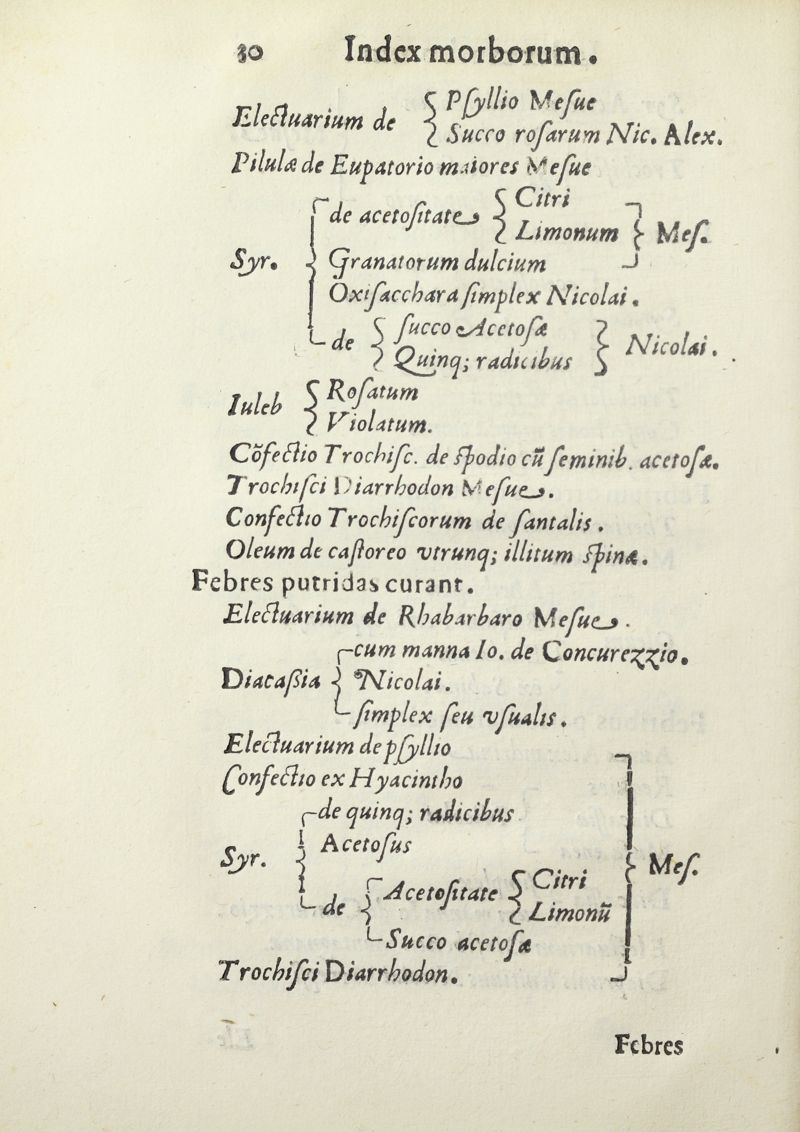 30 Index morborum.
Electuarium de { Pſyllio Meſue
Succo roſarum Nic. Alex.
Pilulæ de Eupatorio maiores Meſue
Syr. { de acetoſitate { Citri
Limonum } Meſ.
Granatorum dulcium
Oxiſacchara ſimplex Nicolai.
de { ſucco Acetoſæ
Quinq; radicibus } Nicolai.
Iuleb { Roſatum
Violatum.
Cõfectio Trochiſc. de ſpodio cũ ſeminib. acetoſæ.
Trochiſci Diarrhodon Meſue.
Confectio Trochiſcorum de ſantalis.
Oleum de caſtoreo vtrunq; illitum ſpinæ.
Febres putridas curant.
Electuarium de Rhabarbaro Meſue.
Diacaßia { cum manna Io. de Concurezzio.
Nicolai.
ſimplex ſeu vſualis.
Electuarium de pſyllio
Confectio ex Hyacintho
Syr. { de quinq; radicibus
Acetoſus
de { Acetoſitate { Citri
Limonũ } Meſ.
Succo acetoſæ
Trochiſci Diarrhodon.
Febres